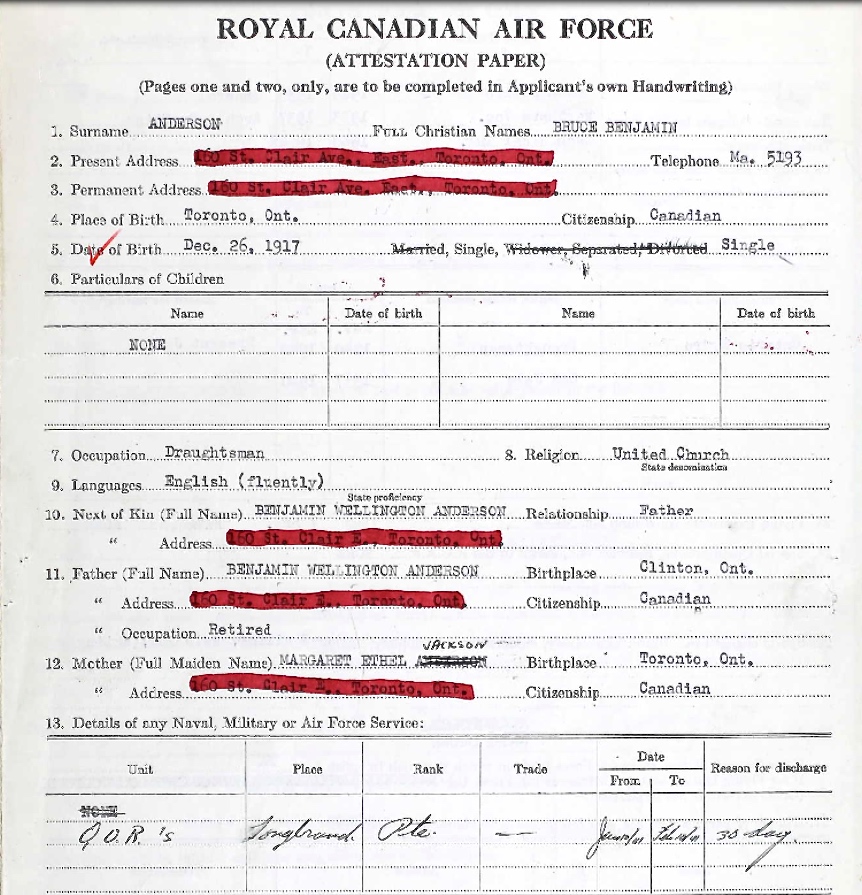 ROYAL CANADIAN AIR FORCE
(ATTESTATION PAPER)
(Pages one and two, only, are to be completed in Applicant's own Handwriting)
1. Surname ANDERSON FULL Christian Names BRUCE BENJAMIN
2. Present Address 160 St. Clair Ave., East., Toronto, Ont. Telephone Ma. 5193
3. Permanent Address 160 St. Clair Ave. East., Toronto, Ont.
4. Place of Birth Toronto, Ont. Citizenship Canadian
5. Date of Birth Dec. 26, 1917 Married, Single, Widower, Separated, Divorced Single
6. Particulars of Children
Name Date of birth Name Date of birth
NONE
7. Occupation Draughtsman 8. Religion United Church
State denomination
9. Languages English (fluently)
State proficiency
10. Next of Kin (Full Name) BENJAMIN WELLINGTON ANDERSON Relationship Father
" Address 160 St. Clair E., Toronto, Ont.
11. Father (Full Name) BENJAMIN WELLINGTON ANDERSON Birthplace Clinton, Ont.
" Address 160 St. Clair E., Toronto, Ont. Citizenship Canadian
" Occupation Retired
JACKSON
12. Mother (Full Maiden Name) MARGARET ETHEL ANDERSON Birthplace Toronto, Ont.
" Address 160 St. Clair E., Toronto, Ont. Citizenship Canadian
13. Details of any Naval, Military or Air Force Service:
Date
Unit Place Rank Trade Reason for discharge
From To
NONE
Q.O.R.'s Pte. — 30 day.